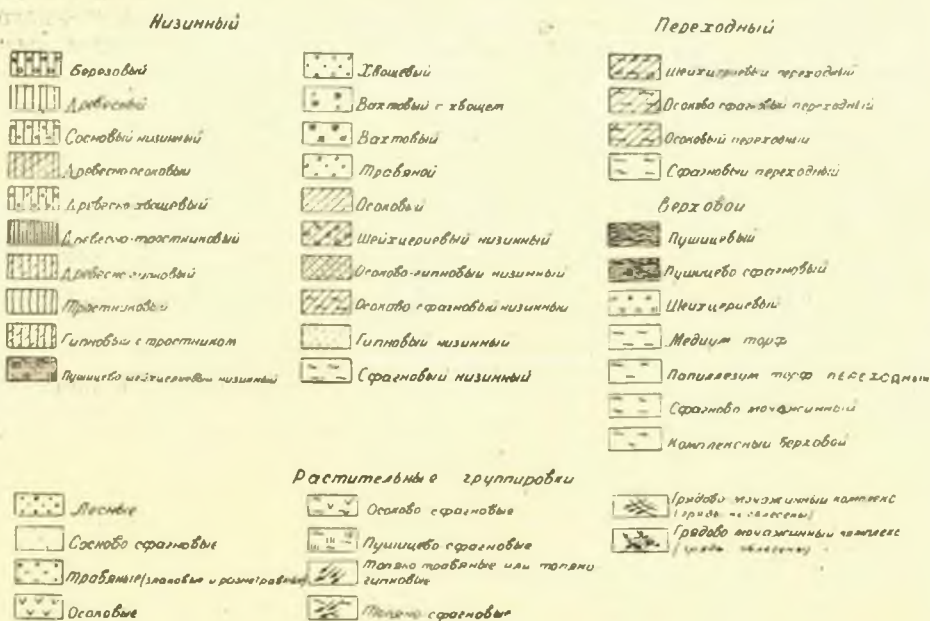 Низинный
Березовый
Древесный
Сосновый низинный
Древесноосоковый
Древесно хвощевый
Древесно-тростниковый
Древесно гипновый
Тростниковый
Гипновый с тростником
Пушицево шейхцериевый низинный
Хвощевый
Вахтовый с хвощем
Вахтовый
Травяной
Осоковый
Шейхцериевый низинный
Осоково-гипновый низинный
Осоково сфагновый низинный
Гипновый низинный
Сфагновый низинный
Переходный
Шейхцериевый переходный
Осоково сфагновый переходный
Осоковый переходный
Сфагновый переходный
Верховой
Пушицевый
Пушицево сфагновый
Шейхцериевый
Медиум торф
Папиллезум торф ПЕРЕХОДНЫЙ
Сфагново мочажинный
Комплексный верховой
Растительные группировки
Лесные
Сосново сфагновые
Травяные (злаковые и разнотравные)
Осоковые
Осоково сфагновые
Пушицево сфагновые
Топяно травяные или топяно
гипновые
Топяно сфагновые
Грядово мочажинный комплекс
(гряды не облесены)
Грядово мочажинный комплекс
(гряды облесены)